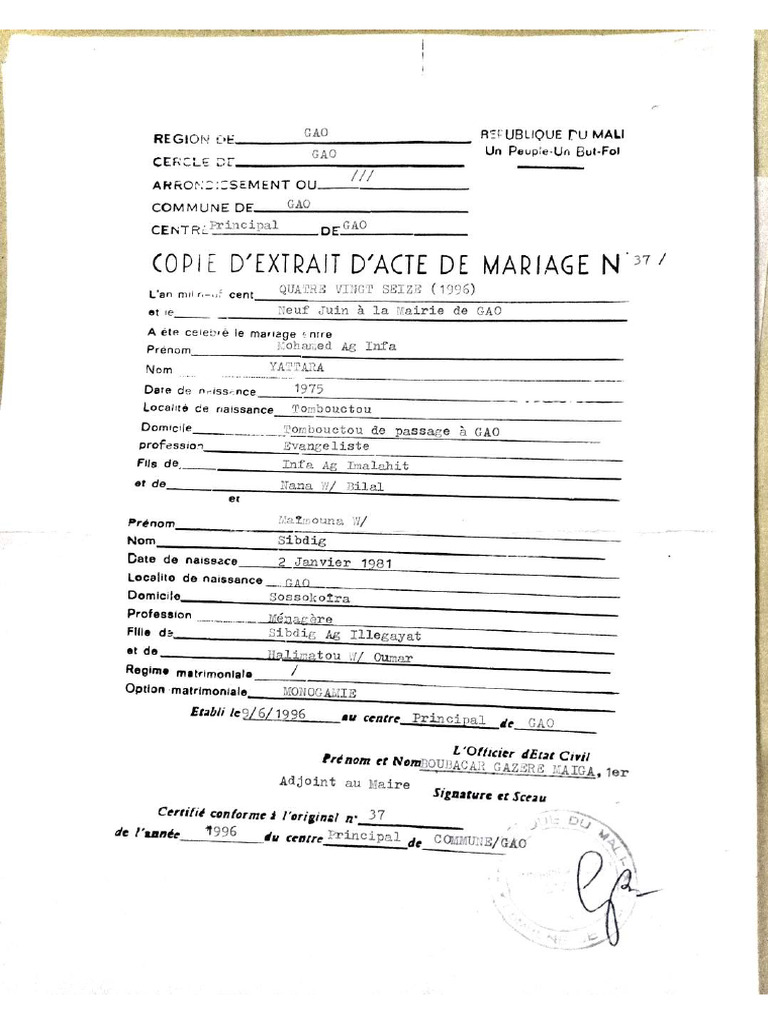 REGION DE GAO
REPUBLIQUE DU MALI
CERCLE DE GAO
Un Peuple-Un But-Foi
ARRONDISSEMENT OU ///
COMMUNE DE GAO
CENTRE Principal DE GAO
COPIE D'EXTRAIT D'ACTE DE MARIAGE N° 37 /
L'an mil neuf cent QUATRE VINGT SEIZE (1996)
et le Neuf Juin à la Mairie de GAO
A été celebré le mariage entre
Prénom Mohamed Ag Infa
Nom YATTARA
Date de naissance 1975
Localité de naissance Tombouctou
Domicile Tombouctou de passage à GAO
profession Evangeliste
Fils de Infa Ag Imalahit
et de Nana W/ Bilal
et
Prénom Maïmouna W/
Nom Sibdig
Date de naissace 2 Janvier 1981
Localito de naissance GAO
Domicile Sossokoïra
Profession Ménagère
Fille de Sibdig Ag Illegayat
et de Halimatou W/ Oumar
Regime matrimoniale /
Option matrimoniale MONOGAMIE
Etabli le 9/6/1996 au centre Principal de GAO
L'Officier dEtat Civil
Prénom et Nom BOUBACAR GAZERE MAIGA, 1er
Adjoint au Maire
Signature et Sceau
Certifié conforme à l'original n° 37
de l'année 1996 du centre Principal de COMMUNE/GAO
DU MALI